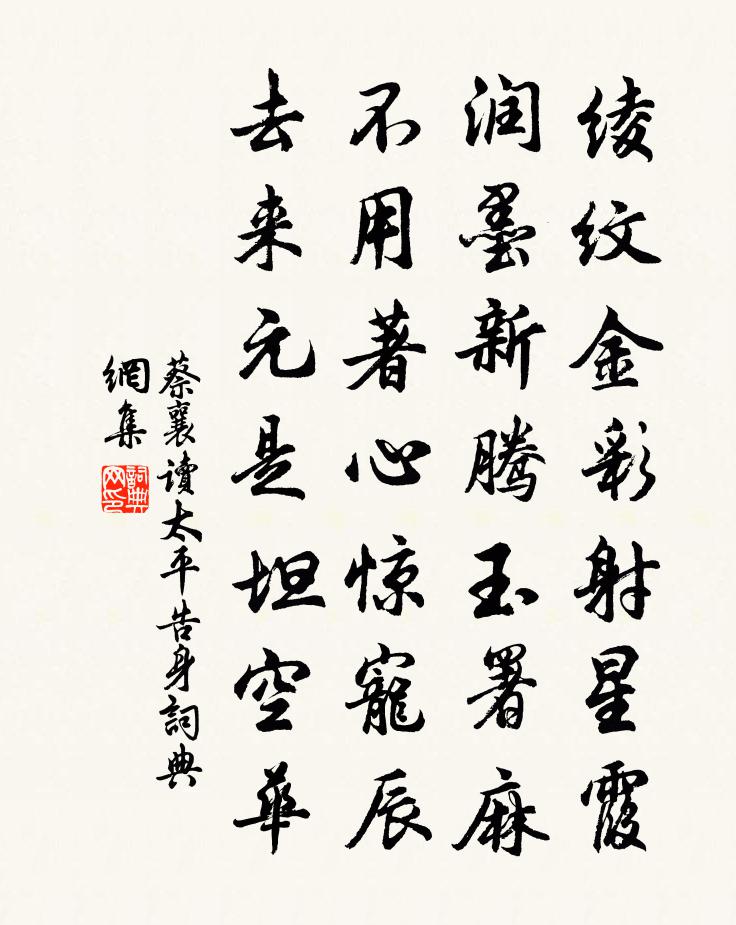 绫纹金彩射星霞
润墨新腾玉署麻
不用著心惊寵辰
去来元是坦空華
蔡襄讀太平告身詞典
網集
詞典網印